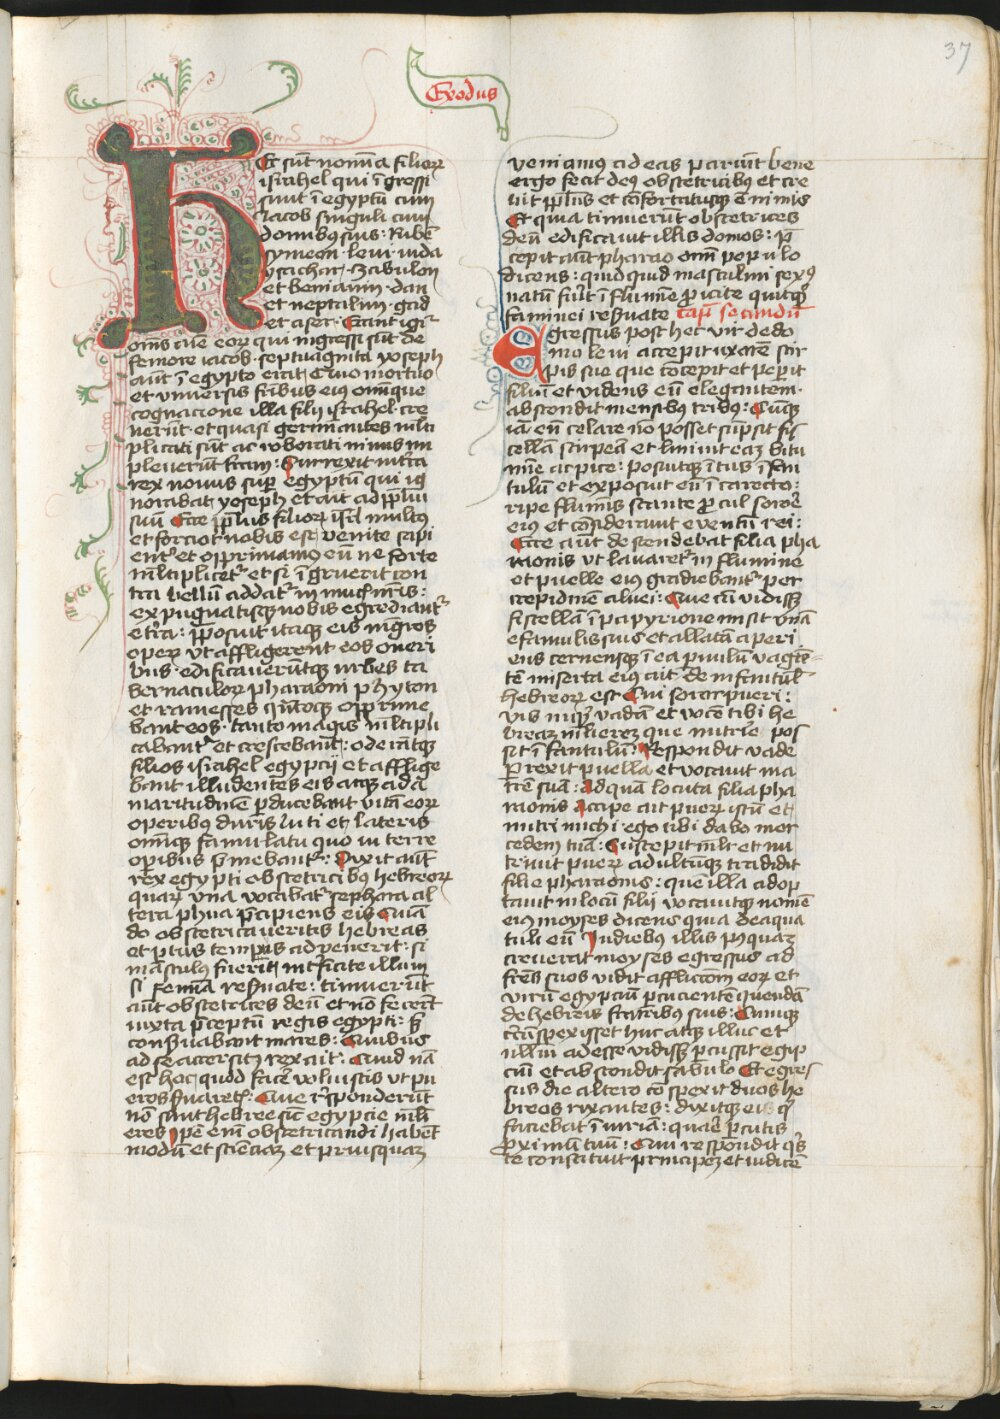 37
Exodus
Hec sūt nomīa filiorꝝ
israhel qui īgressi
sunt ī egyptū cum
Jacob singuli cum
domibus suis: Rubē
symeon · leui · iuda
ysachar · zabulon
et beniamin · dan
et neptalim · gad
et aser · Erant igr̄
om̄s aīe eorꝝ qui ingressi sūt de
femore iacob · septuaginta yoseph
aūt ī egypto erat · Quo mortuo
et vniuersis frībus eius omīque
cognacione illa filii israhel cre
uerūt · et quasi germinātes mlti
plicati sūt ac roborati nimis im
pleuerūt terram : Surrexit inītia
rex nouus suꝑ egyptū qui ig
norabat yoseph et ait ad ppl̄m
suū Ecce ppl̄us filiorꝝ isrl̄ multus
et forcior nobis est venite sapi
ent̄ et opprimamus eū ne forte
m̄ltiplicet̄ et si īgruerit con
tra bellū addat̄ inimicis n̄ris :
expugnatisqꝫ nobis egrediant̄
e tr̄a : p̄posuit itaqꝫ eis mgr̄os
operꝝ vt affligerent eos oneri
bus · edificauerūtqꝫ urbes ta
bernaculorꝝ pharaoni phyton
et ramesses quātoqꝫ opprime
bant eos · tanto magis mltipli
cabant̄ et crescebant : oderātqꝫ
filios israhel egypcii et afflige
bant illudentes eis atqꝫ ad a
maritudinē ꝑducebāt vitā eorꝝ
operibus duris luti et lateris
omīqꝫ famulatu quo in terre
oꝑibus p̄mebant̄ : Dixit aūt
rex egypti obstetricibus hebreorꝝ
quarꝝ vna vocabat̄ sephora al
tera phua p̄cipiens eis Quā
do obstetricaueritis hebreas
et ptus tempus aduenerit : si
masculus fuerit int̄ficite illum
si femīa resuate : timuerūt
aūt obstetrices deū et nō fecert̄
iuxta p̄ceptū regis egypti : sꝫ
conseruabant mares : Quibus
ad se accersit̄ rex ait : Quid nā
est hoc quod facē voluistis vt pu
eros suaret̄ : Que r̄sponderūt
nō sunt hebree sic̄ egypcie mlī
eres ipē enī obstetricandi habēt
modū et scienciaꝫ et priusquaꝫ
veniamus ad eas pariūt bene
ergo fecit deus obstetricibus et cre
uit ppl̄us et cōfortatusqꝫ ē nimis
Et quia timuerūt obstetrices
deū edificauit illis domos : p̄
cepit aūt pharao omī populo
dicens : quidquid masculini sexus
natū fūit ī flumē ꝓicite quitqꝫ
faminei resuate Capl̄ secundū
Egressus post hec vir de do
mo leui accepit uxorē stir
pis sue que cōcepit et peperit
filiū et videns eū elegantem ·
abscondit mensibus tribus : Cumqꝫ
iā eū celare nō posset sūpsit fis
cellā scirpeā et liniuit eaꝫ bitu
mīe ac pice : posuitqꝫ ītus īfan
tulū et exposuit eū ī carecto :
ripe flumīs stante ꝓcul sorore
eius et cōsiderante euentū rei :
Ecce aūt descendebat filia pha
raonis vt lauaret̄ in flumine
et puelle eius gradiebant̄ per
crepidinē aluei : Que cū vidissꝫ
fiscellā ī papyrione misit vnā
e famulis suis et allatā aperi
ens cernensqꝫ ī ea puulū vagiē-
tē miserta eius ait · de infantul̄
hebreorꝝ est Cui soror pueri :
vis inqꝫ vadā et vocē tibi he
breaꝫ mlierem que nutrīe pos
sit īfantulū : Respondit vade
ꝑrexit puella et vocauit ma
trē suā : Ad quā locuta filia pha
raonis Accipe ait puerꝝ istū et
nutri michi ego tibi dabo mer
cedem tuā : Suscepit mlr̄ et nu
triuit puerꝝ adultūqꝫ tradidit
filie pharaonis : quē illa adop
tauit in locū filii vocauitqꝫ nomē
eius moyses dicens quia de aqua
tuli eū In diebus illis pusquaꝫ
creuerat moyses egressus ad
fr̄es suos vidit afflicc̄om eorꝝ et
virū egypciū ꝑcucientē quendā
de hebreis fratribus suis : Cumqꝫ
cīcūspexisset huc atqꝫ illuc et
nllm̄ adesse vidissꝫ ꝑcussit egip
ciū et abscondit sabulo Et egres
sus die altero cōspexit duos he
breos rixantes : dixitqꝫ ei qui
faciebat īiuriā : quare ꝑcutis
ꝓximū tuū : Qui respōndit qs̄
te constituit principeꝫ et iudicē